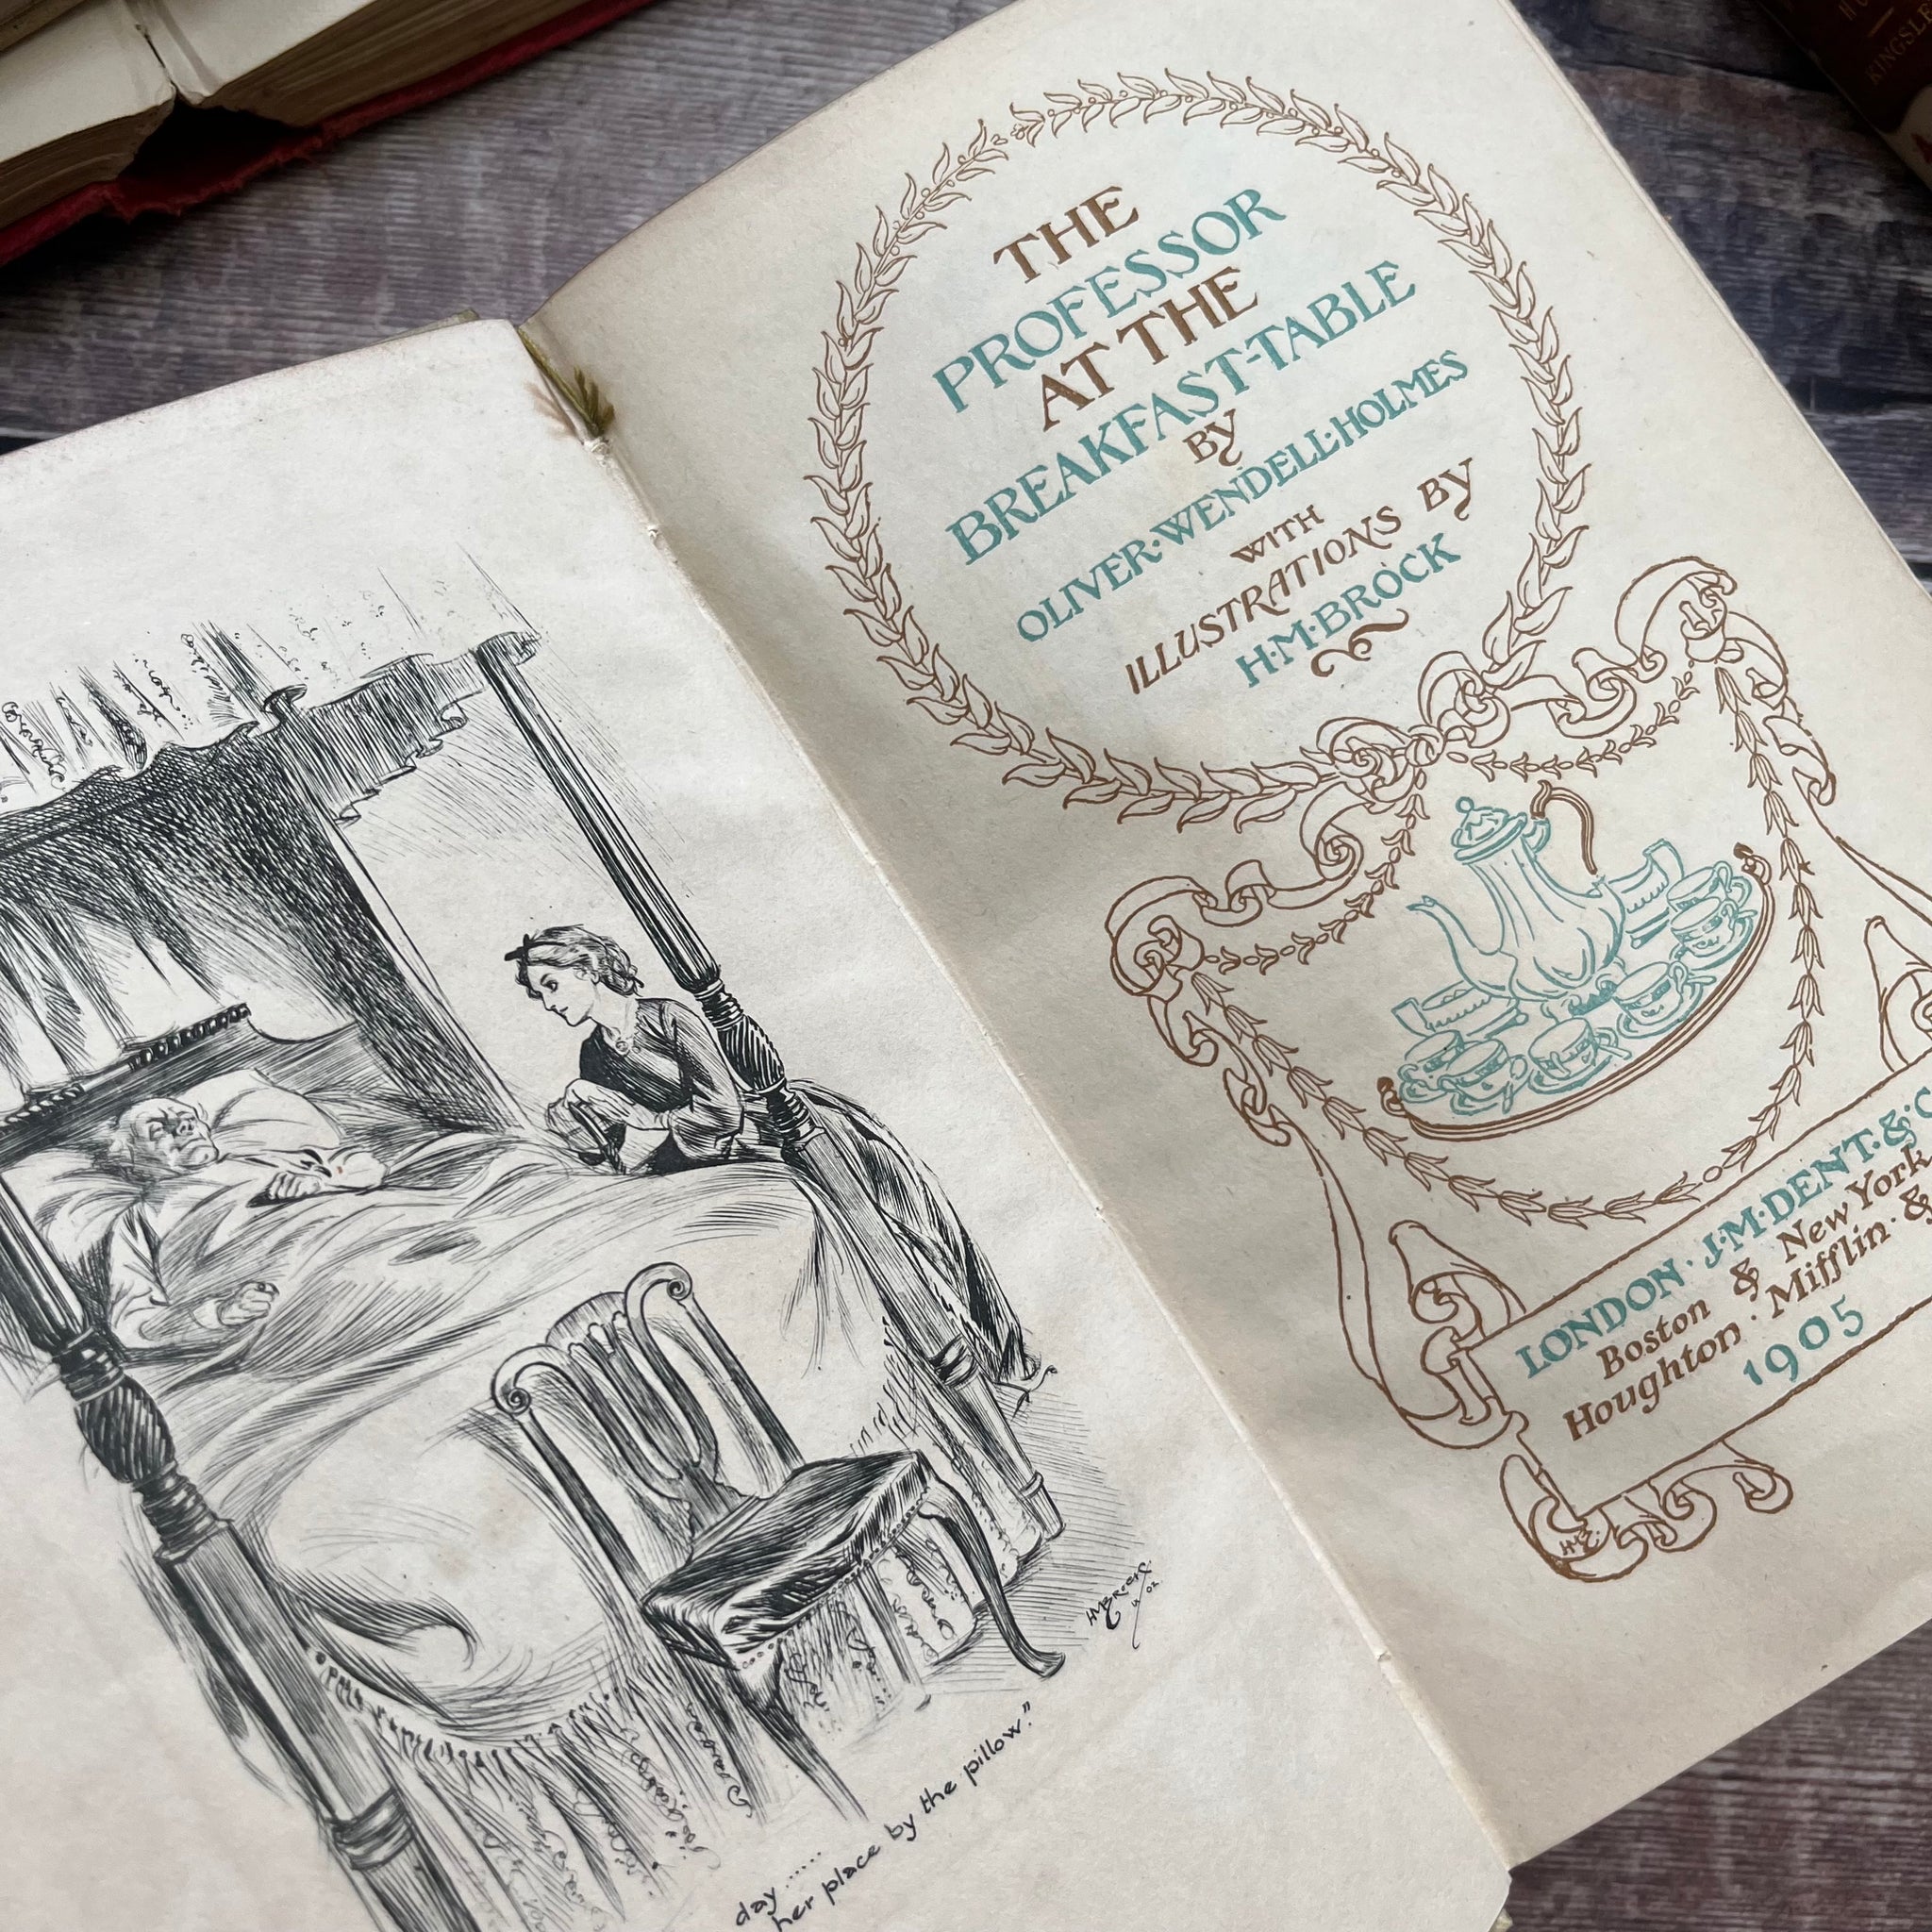 day......
her place by the pillow."
HMBROCK
02
THE
PROFESSOR
AT THE
BREAKFAST-TABLE
BY
OLIVER·WENDELL·HOLMES
WITH
ILLUSTRATIONS BY
H·M·BROCK
LONDON·J·M·DENT·&·C
Boston & New York
Houghton·Mifflin·&
1905
KINGSLE